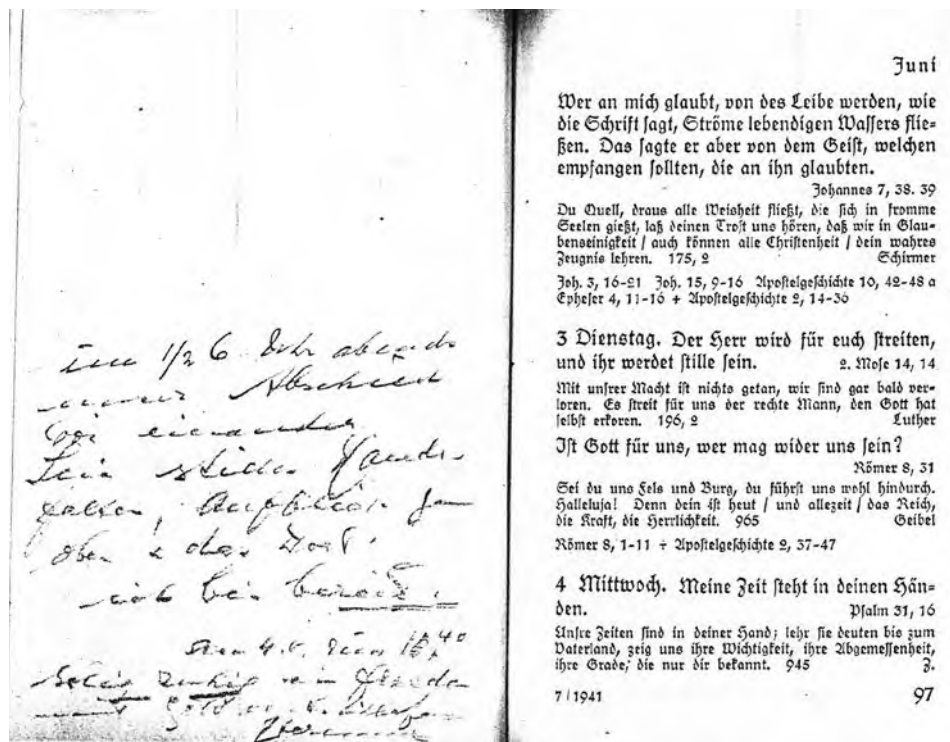 um 1/2 6 Uhr abends
unser Abschied
von einander
Sein stilles Hände-
falten, Aufblick zu
oben u das Wort:
ich bin bereit.
Juni
Wer an mich glaubt, von des Leibe werden, wie
die Schrift sagt, Ströme lebendigen Wassers flie-
ßen. Das sagte er aber von dem Geist, welchen
empfangen sollten, die an ihn glaubten.
Johannes 7, 38. 39
Du Quell, draus alle Weisheit fließt, die sich in fromme
Seelen gießt, laß deinen Trost uns hören, daß wir in Glau-
benseinigkeit / auch können alle Christenheit / dein wahres
Zeugnis lehren. 175, 2 Schirmer
Joh. 3, 16-21 Joh. 15, 9-16 Apostelgeschichte 10, 42-48 a
Epheser 4, 11-16 + Apostelgeschichte 2, 14-36
3 Dienstag. Der Herr wird für euch streiten,
und ihr werdet stille sein. 2. Mose 14, 14
Mit unsrer Macht ist nichts getan, wir sind gar bald ver-
loren. Es streit für uns der rechte Mann, den Gott hat
selbst erkoren. 196, 2 Luther
Ist Gott für uns, wer mag wider uns sein?
Römer 8, 31
Sei du uns Fels und Burg, du führst uns wohl hindurch.
Halleluja! Denn dein ist heut / und allezeit / das Reich,
die Kraft, die Herrlichkeit. 965 Geibel
Römer 8, 1-11 ÷ Apostelgeschichte 2, 37-47
4 Mittwoch. Meine Zeit steht in deinen Hän-
den. Psalm 31, 16
Unsre Zeiten sind in deiner Hand; lehr sie deuten bis zum
Vaterland, zeig uns ihre Wichtigkeit, ihre Abgemessenheit,
ihre Grade, die nur dir bekannt. 945 Z.
7 / 1941 97